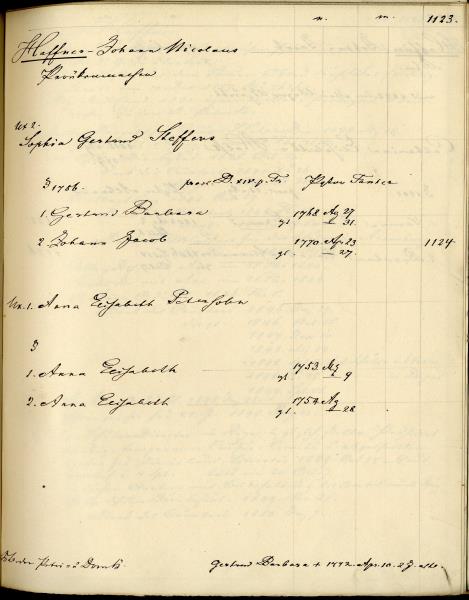 n. m. 1123.
Haffner- Johann Nicolaus
Perückenmacher
ux 2.
Sophia Gertrud Steffens
3 1756. proc. D. XIV. p. Tr. Pastor
1. Gertrud Barbara 1768. Ag 27
gt. — 31.
2. Johann Jacob 1770. Apr. 23 1124.
gt. — 27.
Ux. 1. Anna Elisabeth Petersohn
3
1. Anna Elisabeth 1753. Ag
gt. — 9
2. Anna Elisabeth 1754. Ag
gt. — 28
Petri ad Domk. Gertrud Barbara + 1772. Apr. 10.